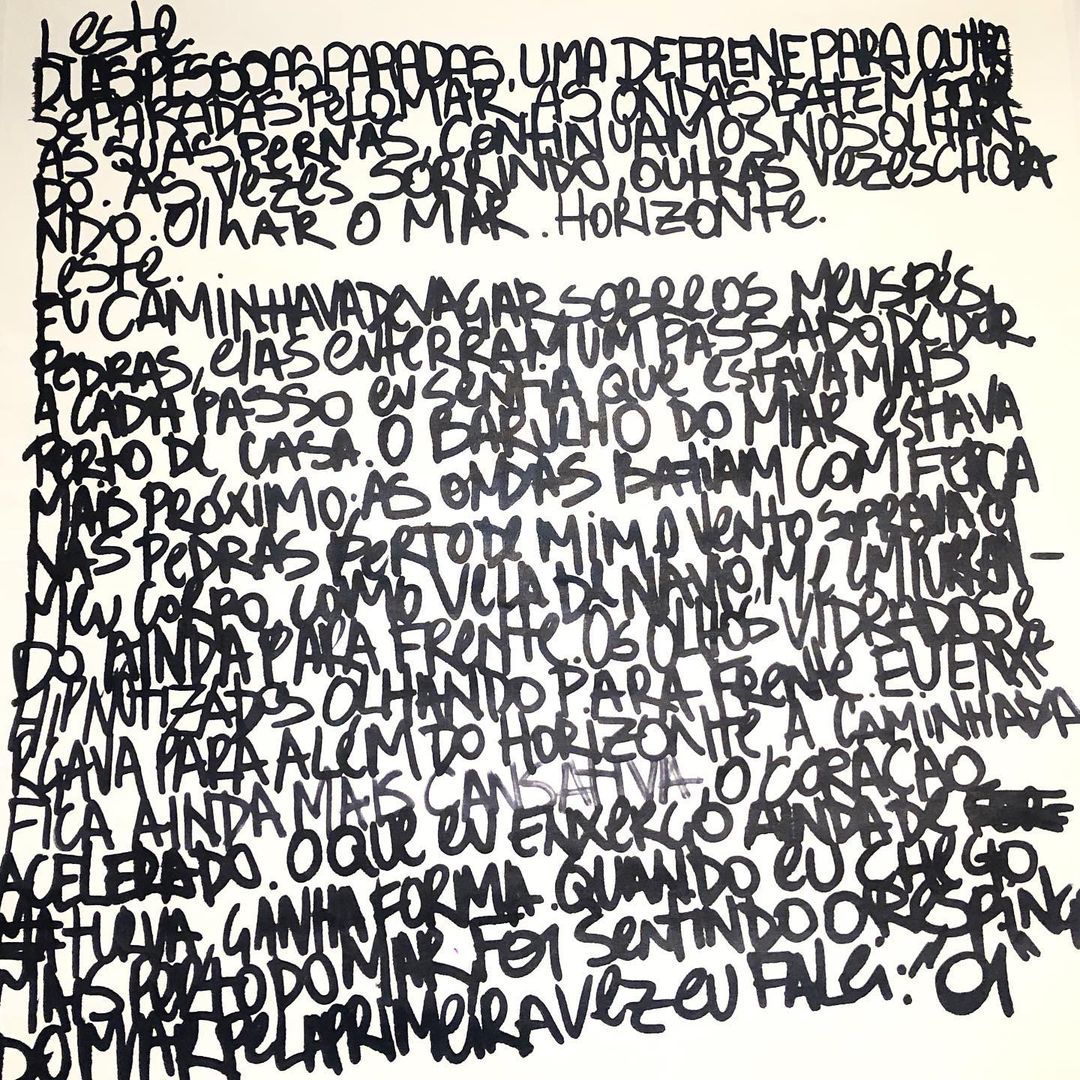 Leste.
DUAS PESSOAS PARADAS, UMA DE FRENE PARA OUTRA
SEPARADAS PELO MAR. AS ONDAS BATEM SOBRE
AS SUAS PERNAS. CONTINUAMOS NOS OLHAN
DO. AS VEZES SORRINDO, OUTRAS VEZES CHORA
NDO. OLHAR O MAR. HORIZONTE.
Leste.
EU CAMINHAVA DEVAGAR SOBRE OS MEUS PÉS,
PEDRAS, ELAS ENTERRAM UM PASSADO DE DOR.
A CADA PASSO EU SENTIA QUE ESTAVA MAIS
PERTO DE CASA. O BARULHO DO MAR ESTAVA
MAIS PRÓXIMO. AS ONDAS BATIAM COM FORÇA
NAS PEDRAS PERTO DE MIM. O VENTO SOPRAVA O
MEU CORPO COMO VELA DE NAVIO. ME EMPURRAN-
DO AINDA PARA FRENTE. OS OLHOS VIDRADOS E
HIPNOTIZADOS OLHANDO PARA FRENTE. EU ENXE
RGAVA PARA ALÉM DO HORIZONTE A CAMINHADA
FICA AINDA MAIS CANSATIVA O CORAÇÃO
ACELERADO. O QUE EU ENXERGO AINDA DE
TURVA, GANHA FORMA. QUANDO EU CHEGO
MAIS PERTO DO MAR FOI SENTINDO O RESPINGO
DO MAR PELA PRIMEIRA VEZ EU FALEI: "OI"